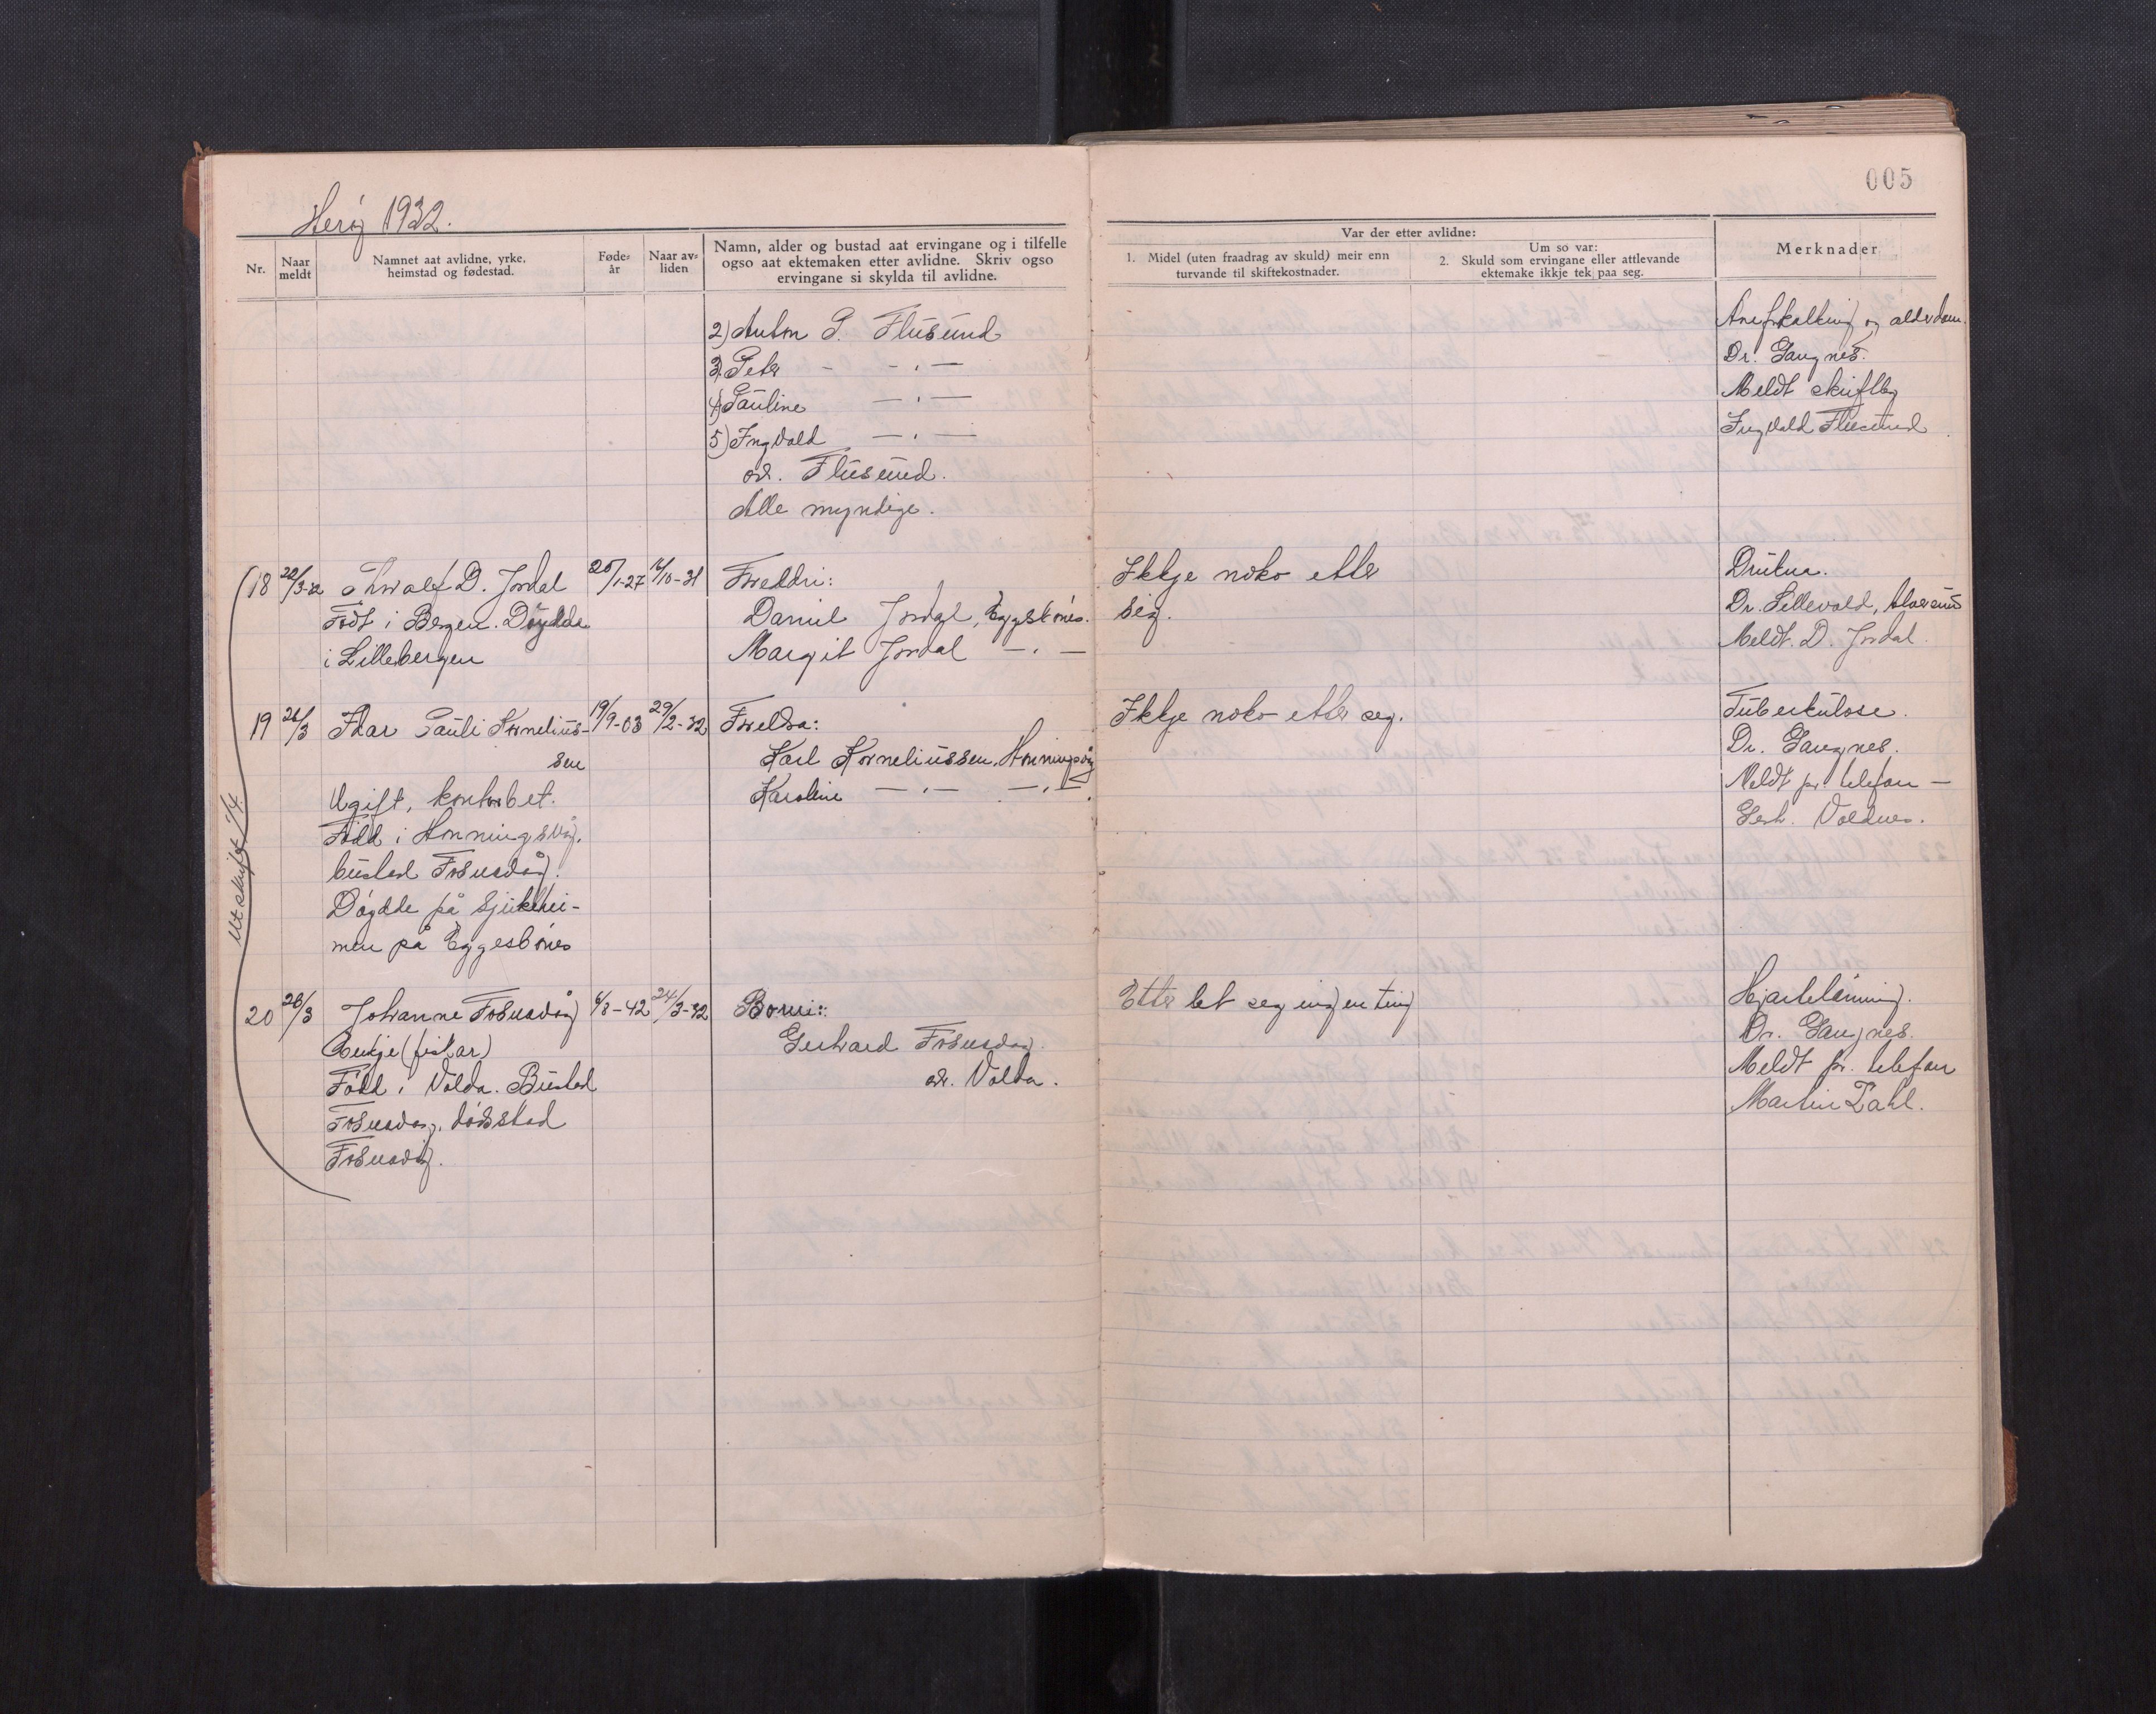 005
Herøy 1932.
Nr.
Naar meldt
Namnet aat avlidne, yrke, heimstad og fødestad.
Føde-år
Naar av-liden
Namn, alder og bustad aat ervingane og i tilfelle
ogso aat ektemaken etter avlidne. Skriv ogso
ervingane si skylda til avlidne.
Var der etter avlidne:
1. Midel (uten fraadrag av skuld) meir enn
turvande til skiftekostnader.
Um so var:
2. Skuld som ervingane eller attlevande
ektemake ikkje tek paa seg.
Merknader
2) Anton P. Flusund
3) Peter - - . -
4) Pauline - . -
5) Ingvald - . -
adr. Flusund.
Alle myndige.
og alderdom.
Dr. Gangnes.
Meldt skriftleg
Ingvald Flusund
18 22/3-32 Thoralf D. Jordal
Født i Bergen. Døydde
i Lillebergen
25/1-27
Foreldri:
Daniel Jordal, Eggesbønes.
Margit Jordal - . -
Ikkje noko etter
seg.
Dr. Lillevold,
Meldt. D. Jordal.
19 26/3 Kornelius-
sen
Ugift, kontorbet.
Fødd i Honningsvåg.
bustad Fosnavåg.
Døydde på Sjukehei-
men på Eggesbønes
19/9-03 29/2-32
Foreldra:
Karl Korneliussen, Honningsvåg
Karoline - . - - . -
Ikkje noko etter seg.
Tuberkulose.
Dr. Gangnes.
Meldt pr. telefon -
Gerh. Voldnes.
20 26/3 Johanne Fosnavåg
Enkje (fiskar)
Fødd i Volda. Bustad
Fosnavåg, dødsstad
Fosnavåg.
24/3-32
Born:
Gerhard Fosnavåg.
adr. Volda.
Etter let seg ingen ting
Hjartelamning.
Dr. Gangnes.
Meldt pr. telefon
Martin Dahl.
Utskrift 1/4.